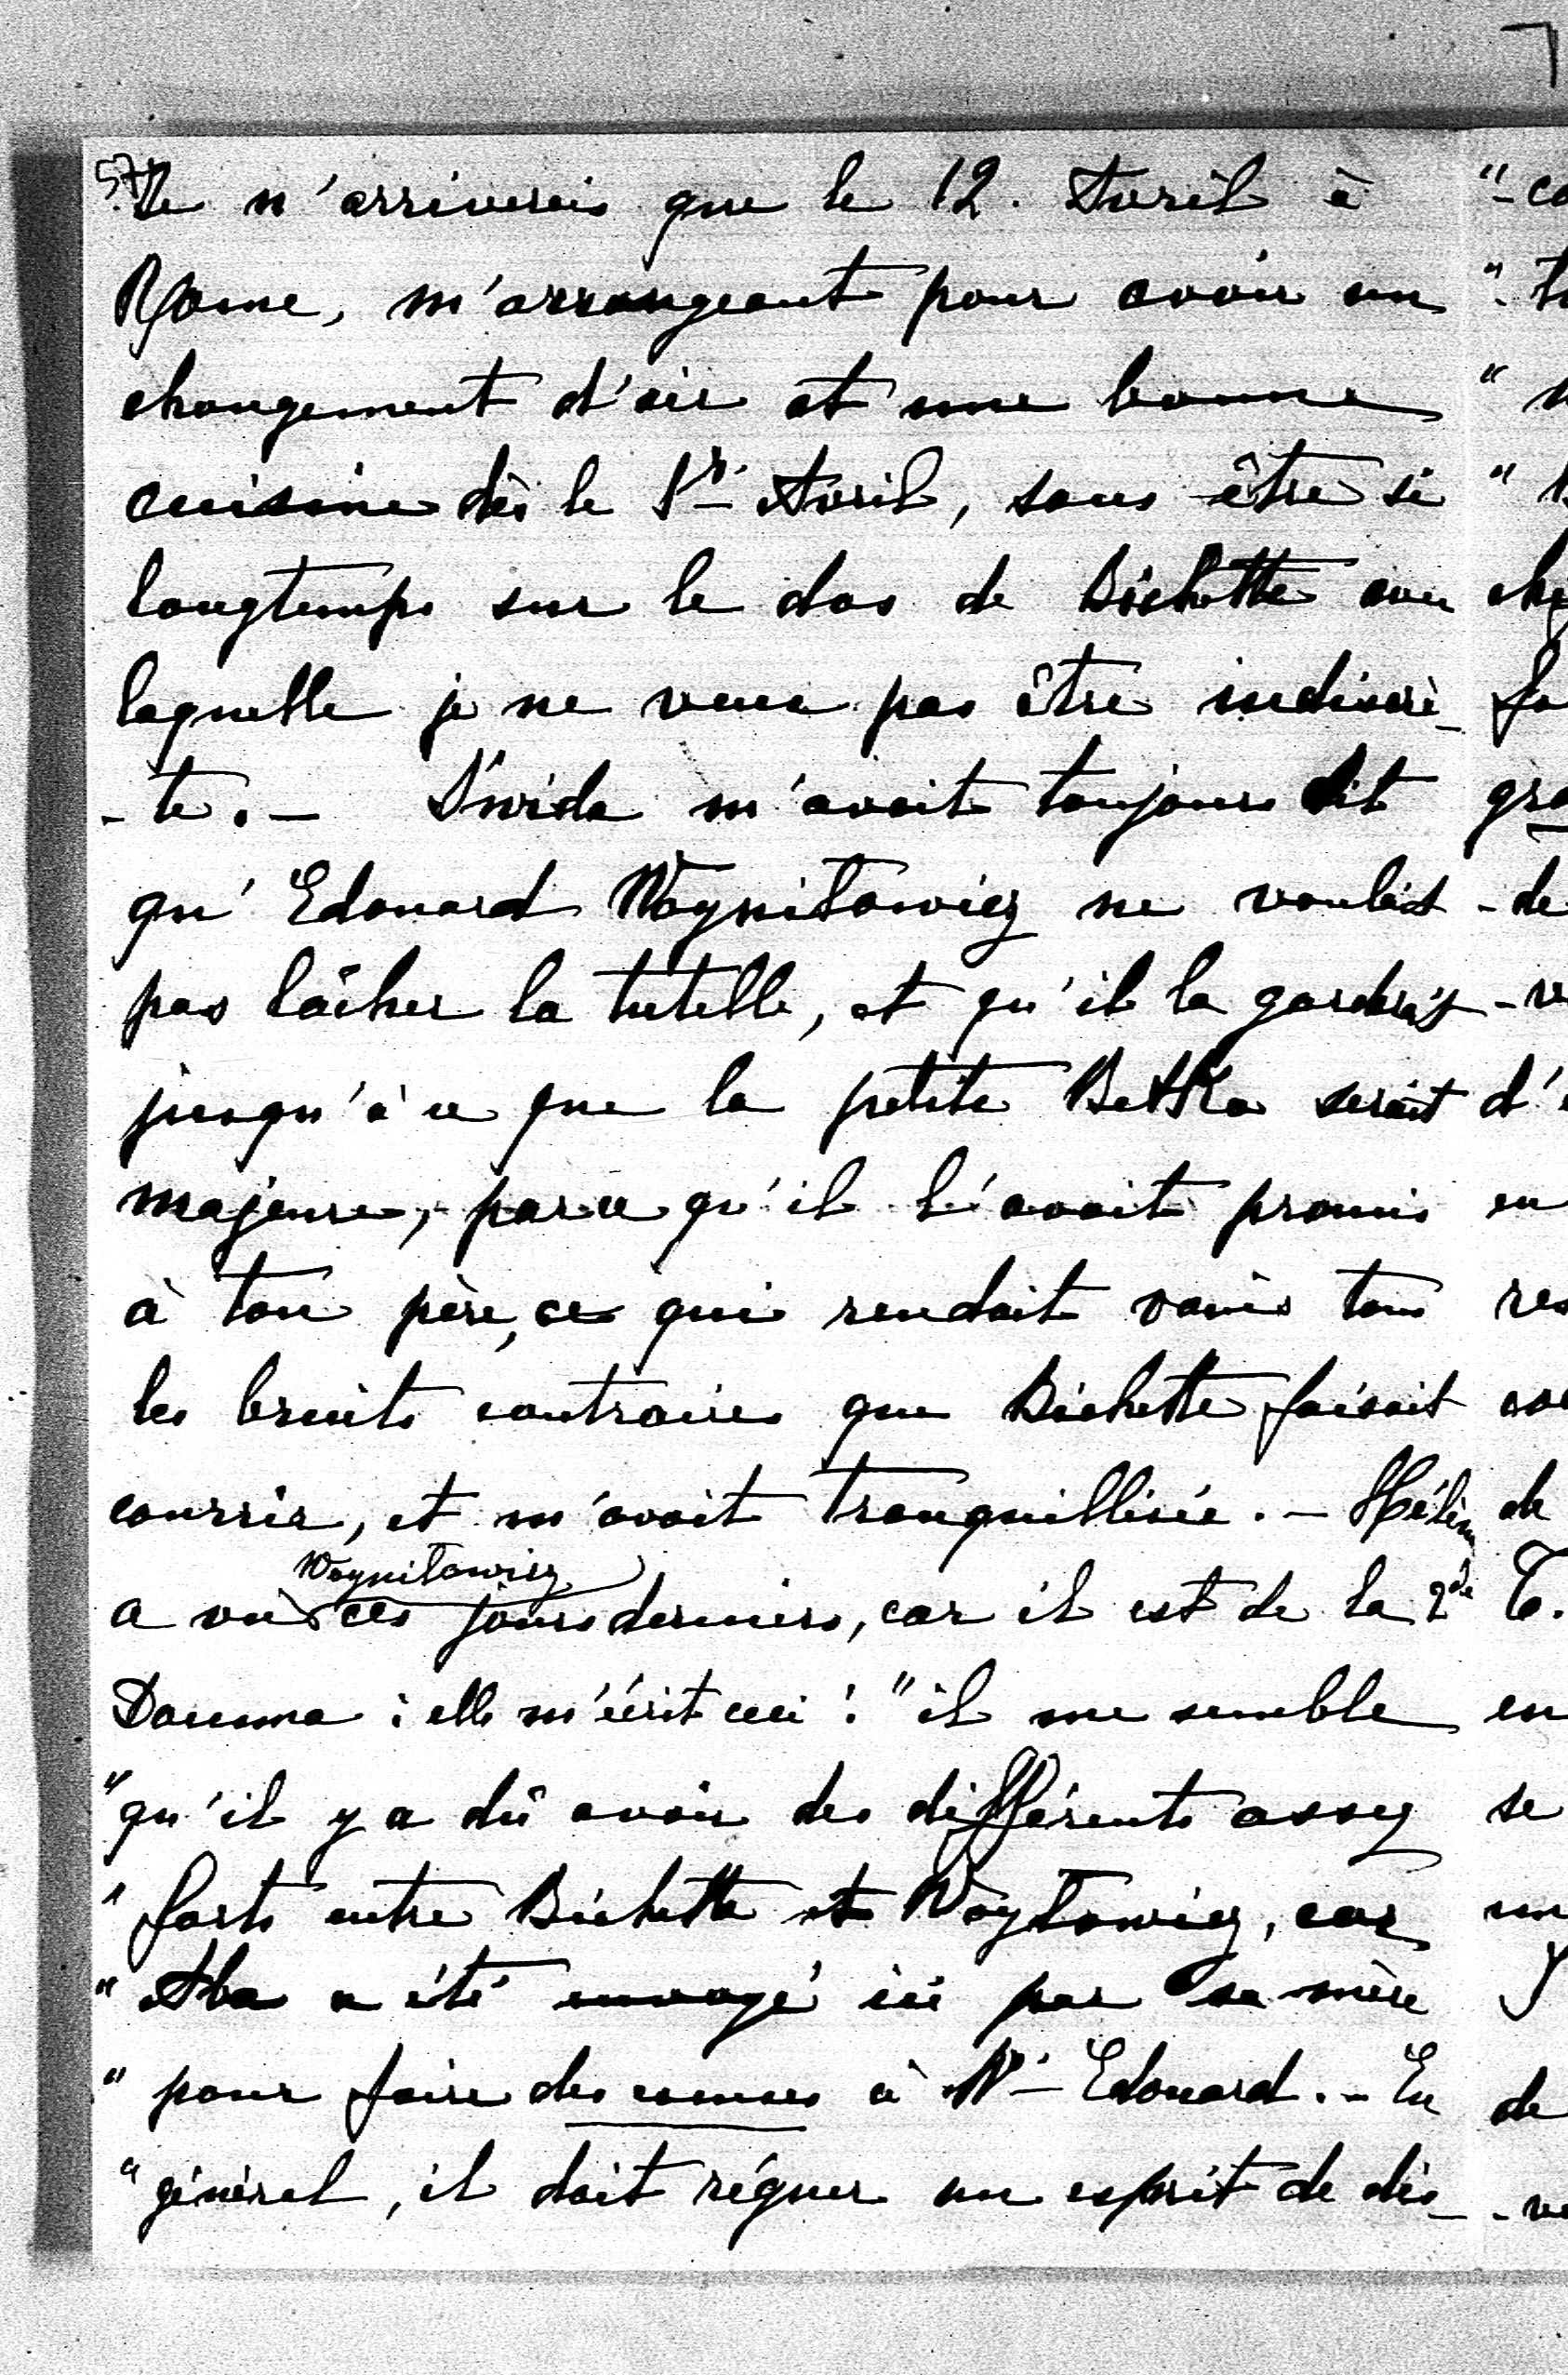 Je n'arriverais que le 12. Avril à
Rome, m'arrangeant pour avoir un
changement d'air et une bonne
cuisine dès le 1r Avril, sans être si
longtemps sur le dos de Bichette avec
laquelle je ne veux pas être indiscrè-
-te. – m'avait toujours dit
qu'Edouard Woynilowicz ne voulait
pas lâcher la tutelle, et qu'il la garderait
jusqu'à ce que la petite Betka serait
majeure, parce qu'il l'avait promis
à ton père, ce qui rendait vains tous
les bruits contraires que Bichette faisait
courrir, et m'avait tranquillisée. – Hélène
Woynilowicz
a vu ces jours derniers, car il est de la 2de
Douma : elle m'écrit ceci : "il me semble
"qu'il y a dû avoir des différents assez
" forts entre Bichette et Woylowicz, car
" Aba a été envoyé ici par sa mère
" pour faire des excuses à Mr Edouard. – En
"général, il doit régner un esprit de dis-